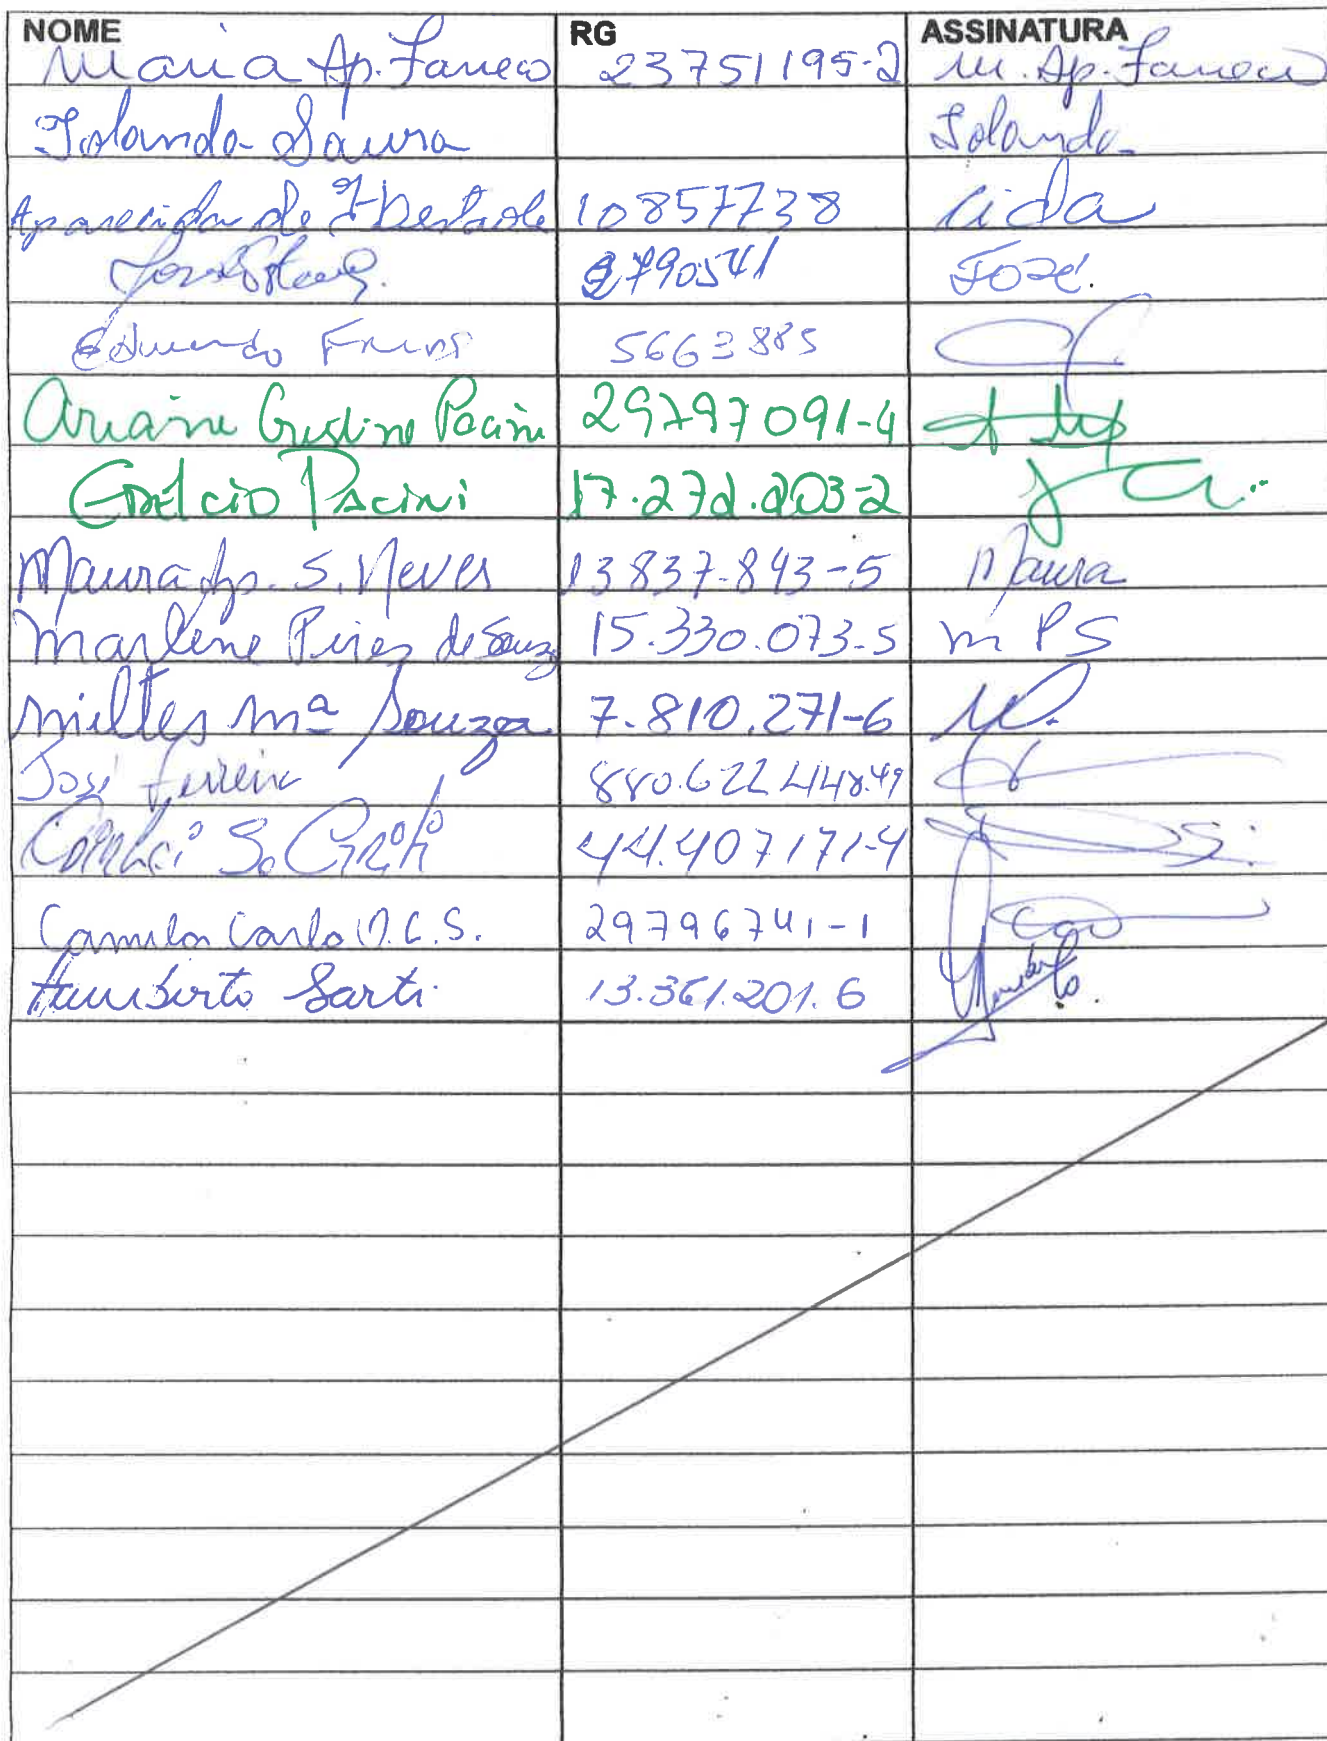 NOME RG ASSINATURA
Maria Ap. 23751195-2 M. Ap.
Iolanda Iolanda
Aparecida de 10857738 Cida
2790541 José.
Eduardo 5663885
Ariaine Cristine Pacini 29797091-4
Edelcio Pacini 17.272.203-2
Maura Ap. S. Neves 13837.843-5 Maura
Marlene Pires de Souza 15.330.073-5 M P S
Miltes Mª Souza 7.810.271-6
José Ferreira 880.622.448.49
44.407171-4
Camila Carla 29796741-1
Humberto Sarti 13.361.201.6 Humberto.